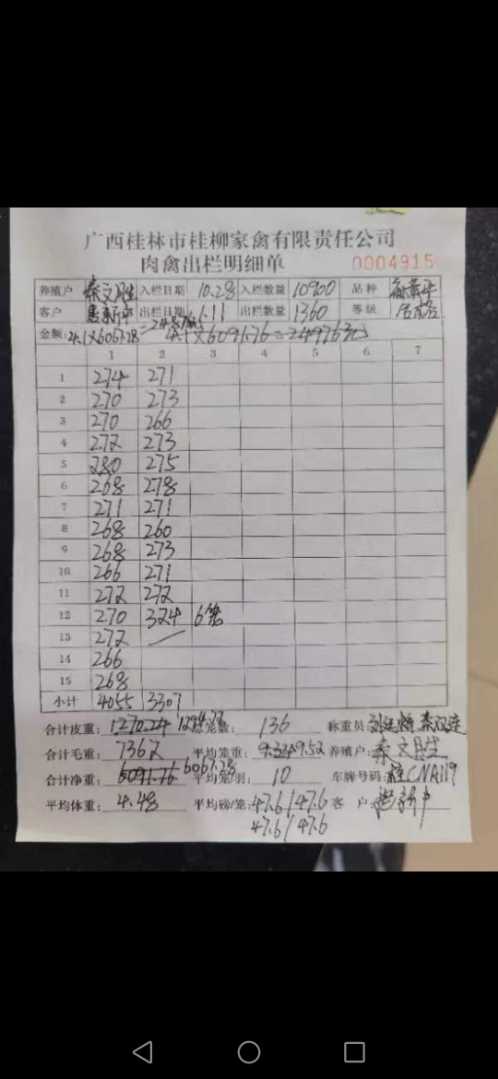 广西桂林市桂柳家禽有限责任公司
肉禽出栏明细单 0004915
养殖户 秦文胜 入栏日期 10.28 入栏数量 10900 品种
客户 出栏日期 1.11 出栏数量 1360 等级
金额: 4.1×6067.28= 4.1×6091.76=24976元
1 2 3 4 5 6 7
1 274 271
2 270 273
3 270 266
4 272 273
5 280 275
6 268 278
7 271 271
8 268 260
9 268 273
10 266 271
11 272 272
12 270 324 6笼
13 272
14 266
15 268
小计 4055 3307
合计皮重: 1270.24 笼数: 136 称重员:
合计毛重: 7362 平均笼重: 9.52 养殖户: 秦文胜
合计净重: 6091.76 6067.28 平均笼羽: 10 车牌号码:
平均体重: 4.48 平均磅/笼: 47.6/47.6 客 户
47.6/47.6